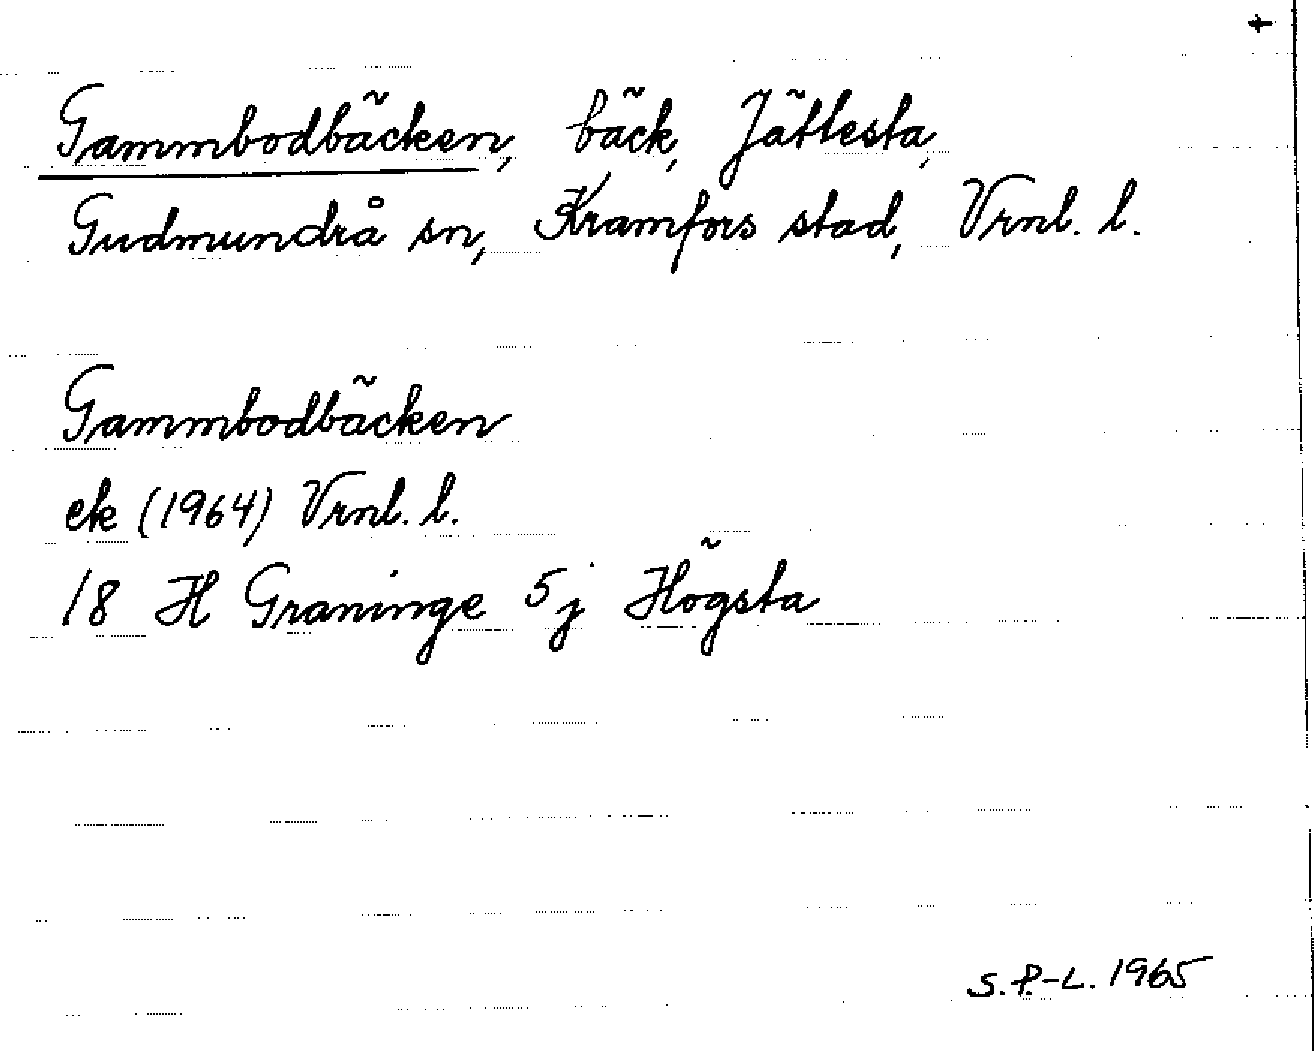 Gammbodbäcken, bäck, Jättesta,
Gudmundrå sn, Kramfors stad, Vrnl. l.
Gammbodbäcken
ek (1964) Vrnl. l.
18 H Graninge 5j Högsta
S.P-L. 1965